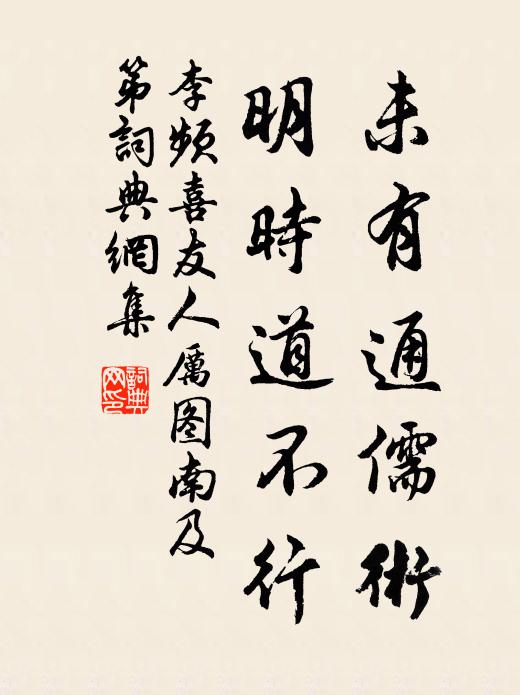 未有通儒術
明時道不行
李频喜友人厲图南及
第詞典網集
詞典网印